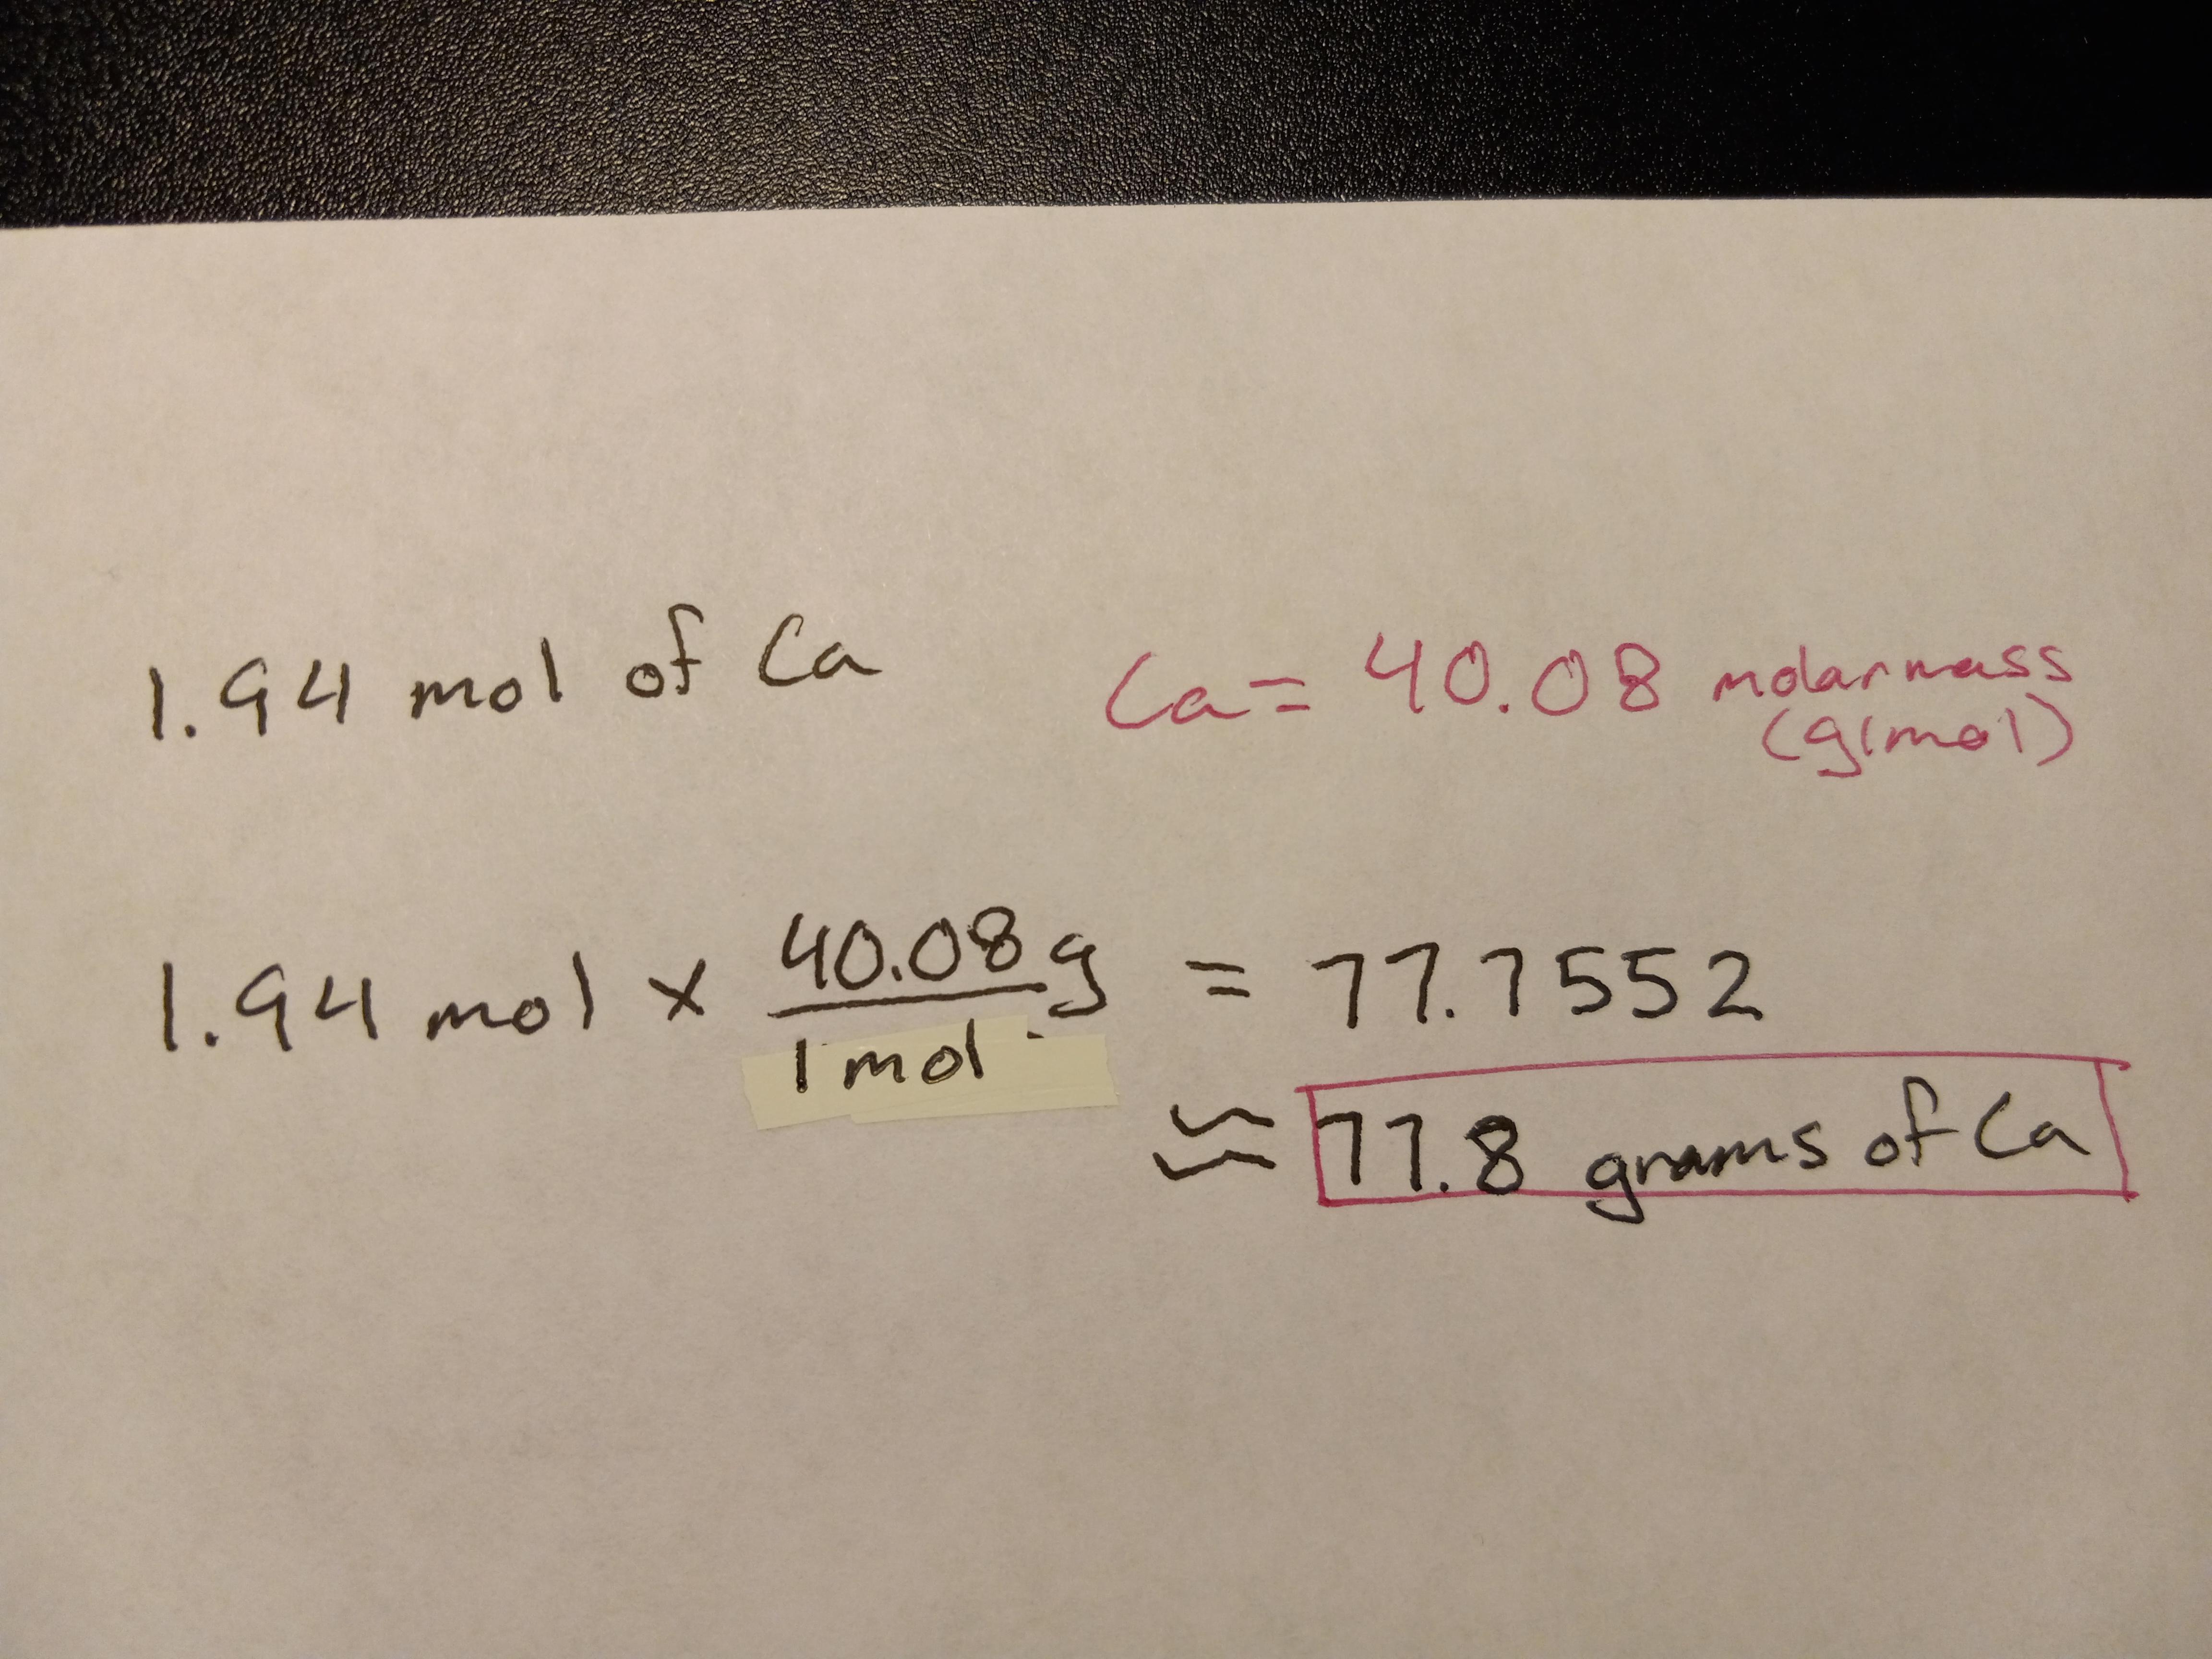 1.94 mol of Ca
Ca = 40.08 molar mass
(g/mol)
1.94 mol x 40.08 g = 77.7552
1 mol
≈ 77.8 grams of Ca